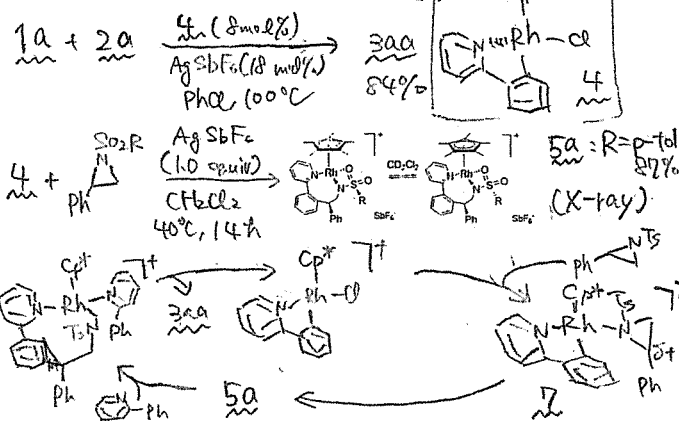 1a + 2a 4 (8 mol%) AgSbF6 (18 mol%) PhCl, 100°C 3aa 84%
N Rh Cl 4
4 + SO2R N Ph AgSbF6 (1.0 equiv) CH2Cl2 40°C, 14h
N Rh O N S O R Ph ]+ SbF6- CD2Cl2 N Rh O N S O R Ph ]+ SbF6-
5a : R = p-tol 87% (X-ray)
Cp* ]+ N Rh N Ph Ts N H Ph
3aa
Cp* ]+ N Rh Cl
Ph NTs
Cp* Ts N Rh N δ+ Ph 7
N Ph 5a